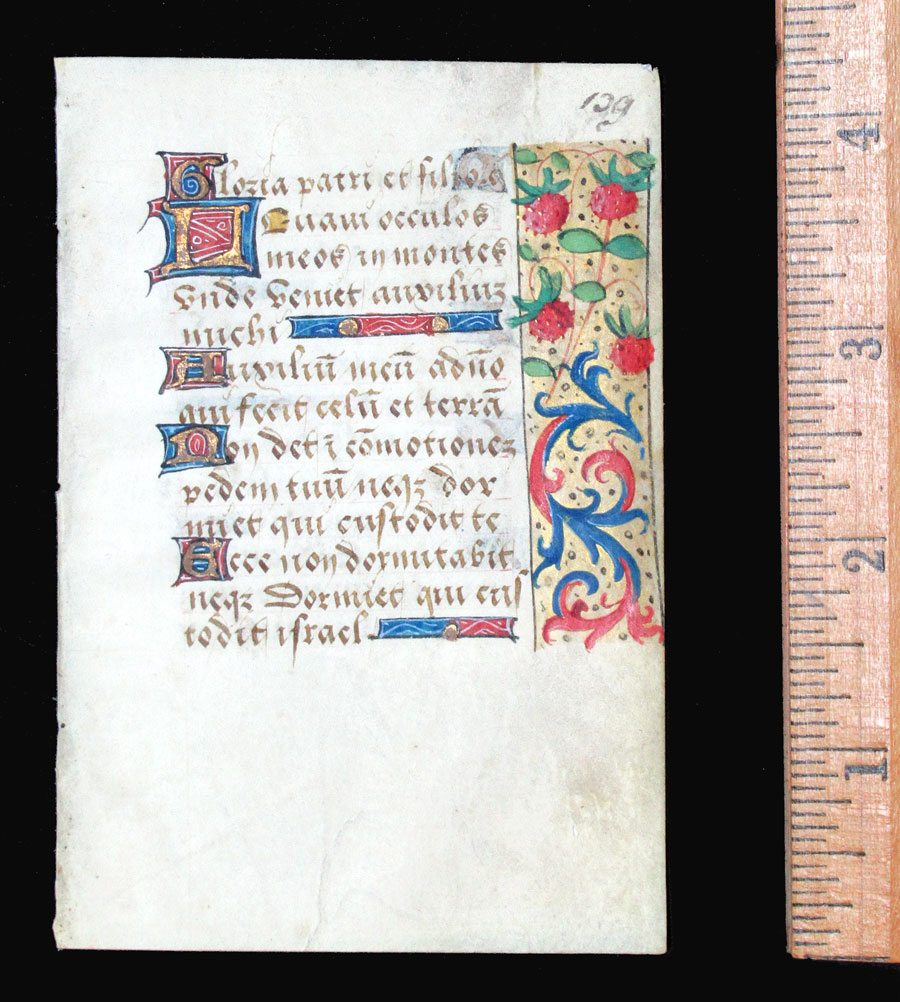 139
Gloria patri et fil
Leuaui occulos
meos in montes
vnde veniet auxiliuz
michi
Auxiliū meū adn̄o
qui fecit celū et terrā
Non det ī cōmotionez
pedem tuū neqz dor
miet qui custodit te
Ecce non dormitabit
neqz Dormiet qui cus
todit israel
4
3
2
1